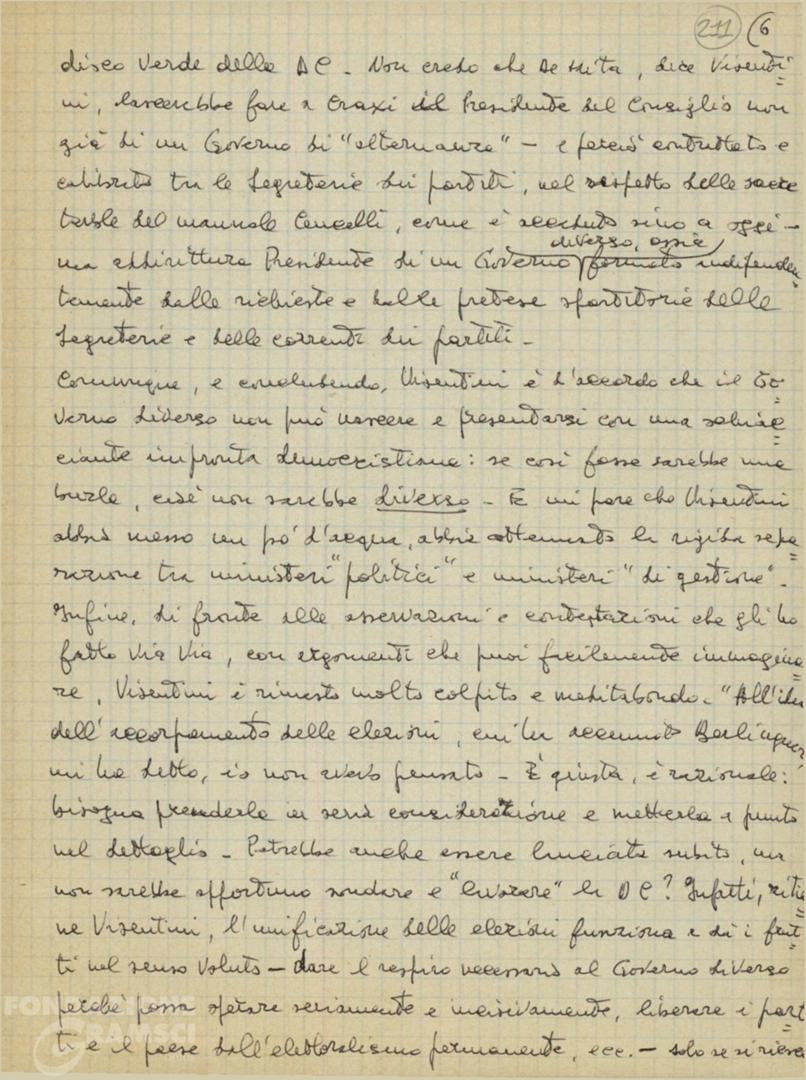 211 (6
disco verde della DC - Non credo che De Mita, dice Visenti=
ni, lascerebbe fare a Craxi il Presidente del Consiglio non
già di un Governo di "alternanza" - e perciò contrattato e
calibrato tra le Segreterie dei partiti, nel rispetto delle sacre
tavole del manuale Cencelli, come è accaduto sino a oggi -
ma addirittura Presidente di un Governo diverso, ossia formato indipenden=
temente dalle richieste e dalle pretese spartitorie delle
Segreterie e delle correnti dei partiti -
Comunque, e concludendo, Visentini è d'accordo che il Go=
verno diverso non può nascere e presentarsi con una schiac=
ciante impronta democristiana: se così fosse sarebbe una
burla, cioè non sarebbe diverso - E mi pare che Visentini
abbia messo un po' d'acqua, abbia attenuato la rigida sepa=
razione tra ministeri "politici" e ministeri "di gestione" -
Infine, di fronte alle osservazioni e contestazioni che gli ho
fatto via via, con argomenti che puoi facilmente immagina=
re, Visentini è rimasto molto colpito e meditabondo. "All'idea
dell'accorpamento delle elezioni, cui ha accennato Berlinguer
mi ha detto, io non avevo pensato - È giusta, è razionale:
bisogna prenderla in seria considerazione e metterla a punto
nel dettaglio - Potrebbe anche essere lanciata subito, ma
non sarebbe opportuno sondare e "      " la DC? Infatti, ritie=
ne Visentini, l'unificazione delle elezioni funziona e dà i frut=
ti nel senso voluto - dare il respiro necessario al Governo diverso
perché possa operare seriamente e incisivamente, liberare i part=
ti e il paese dall'elettoralismo permanente, ecc. - solo se si riesce
FONDAZIONE
GRAMSCI